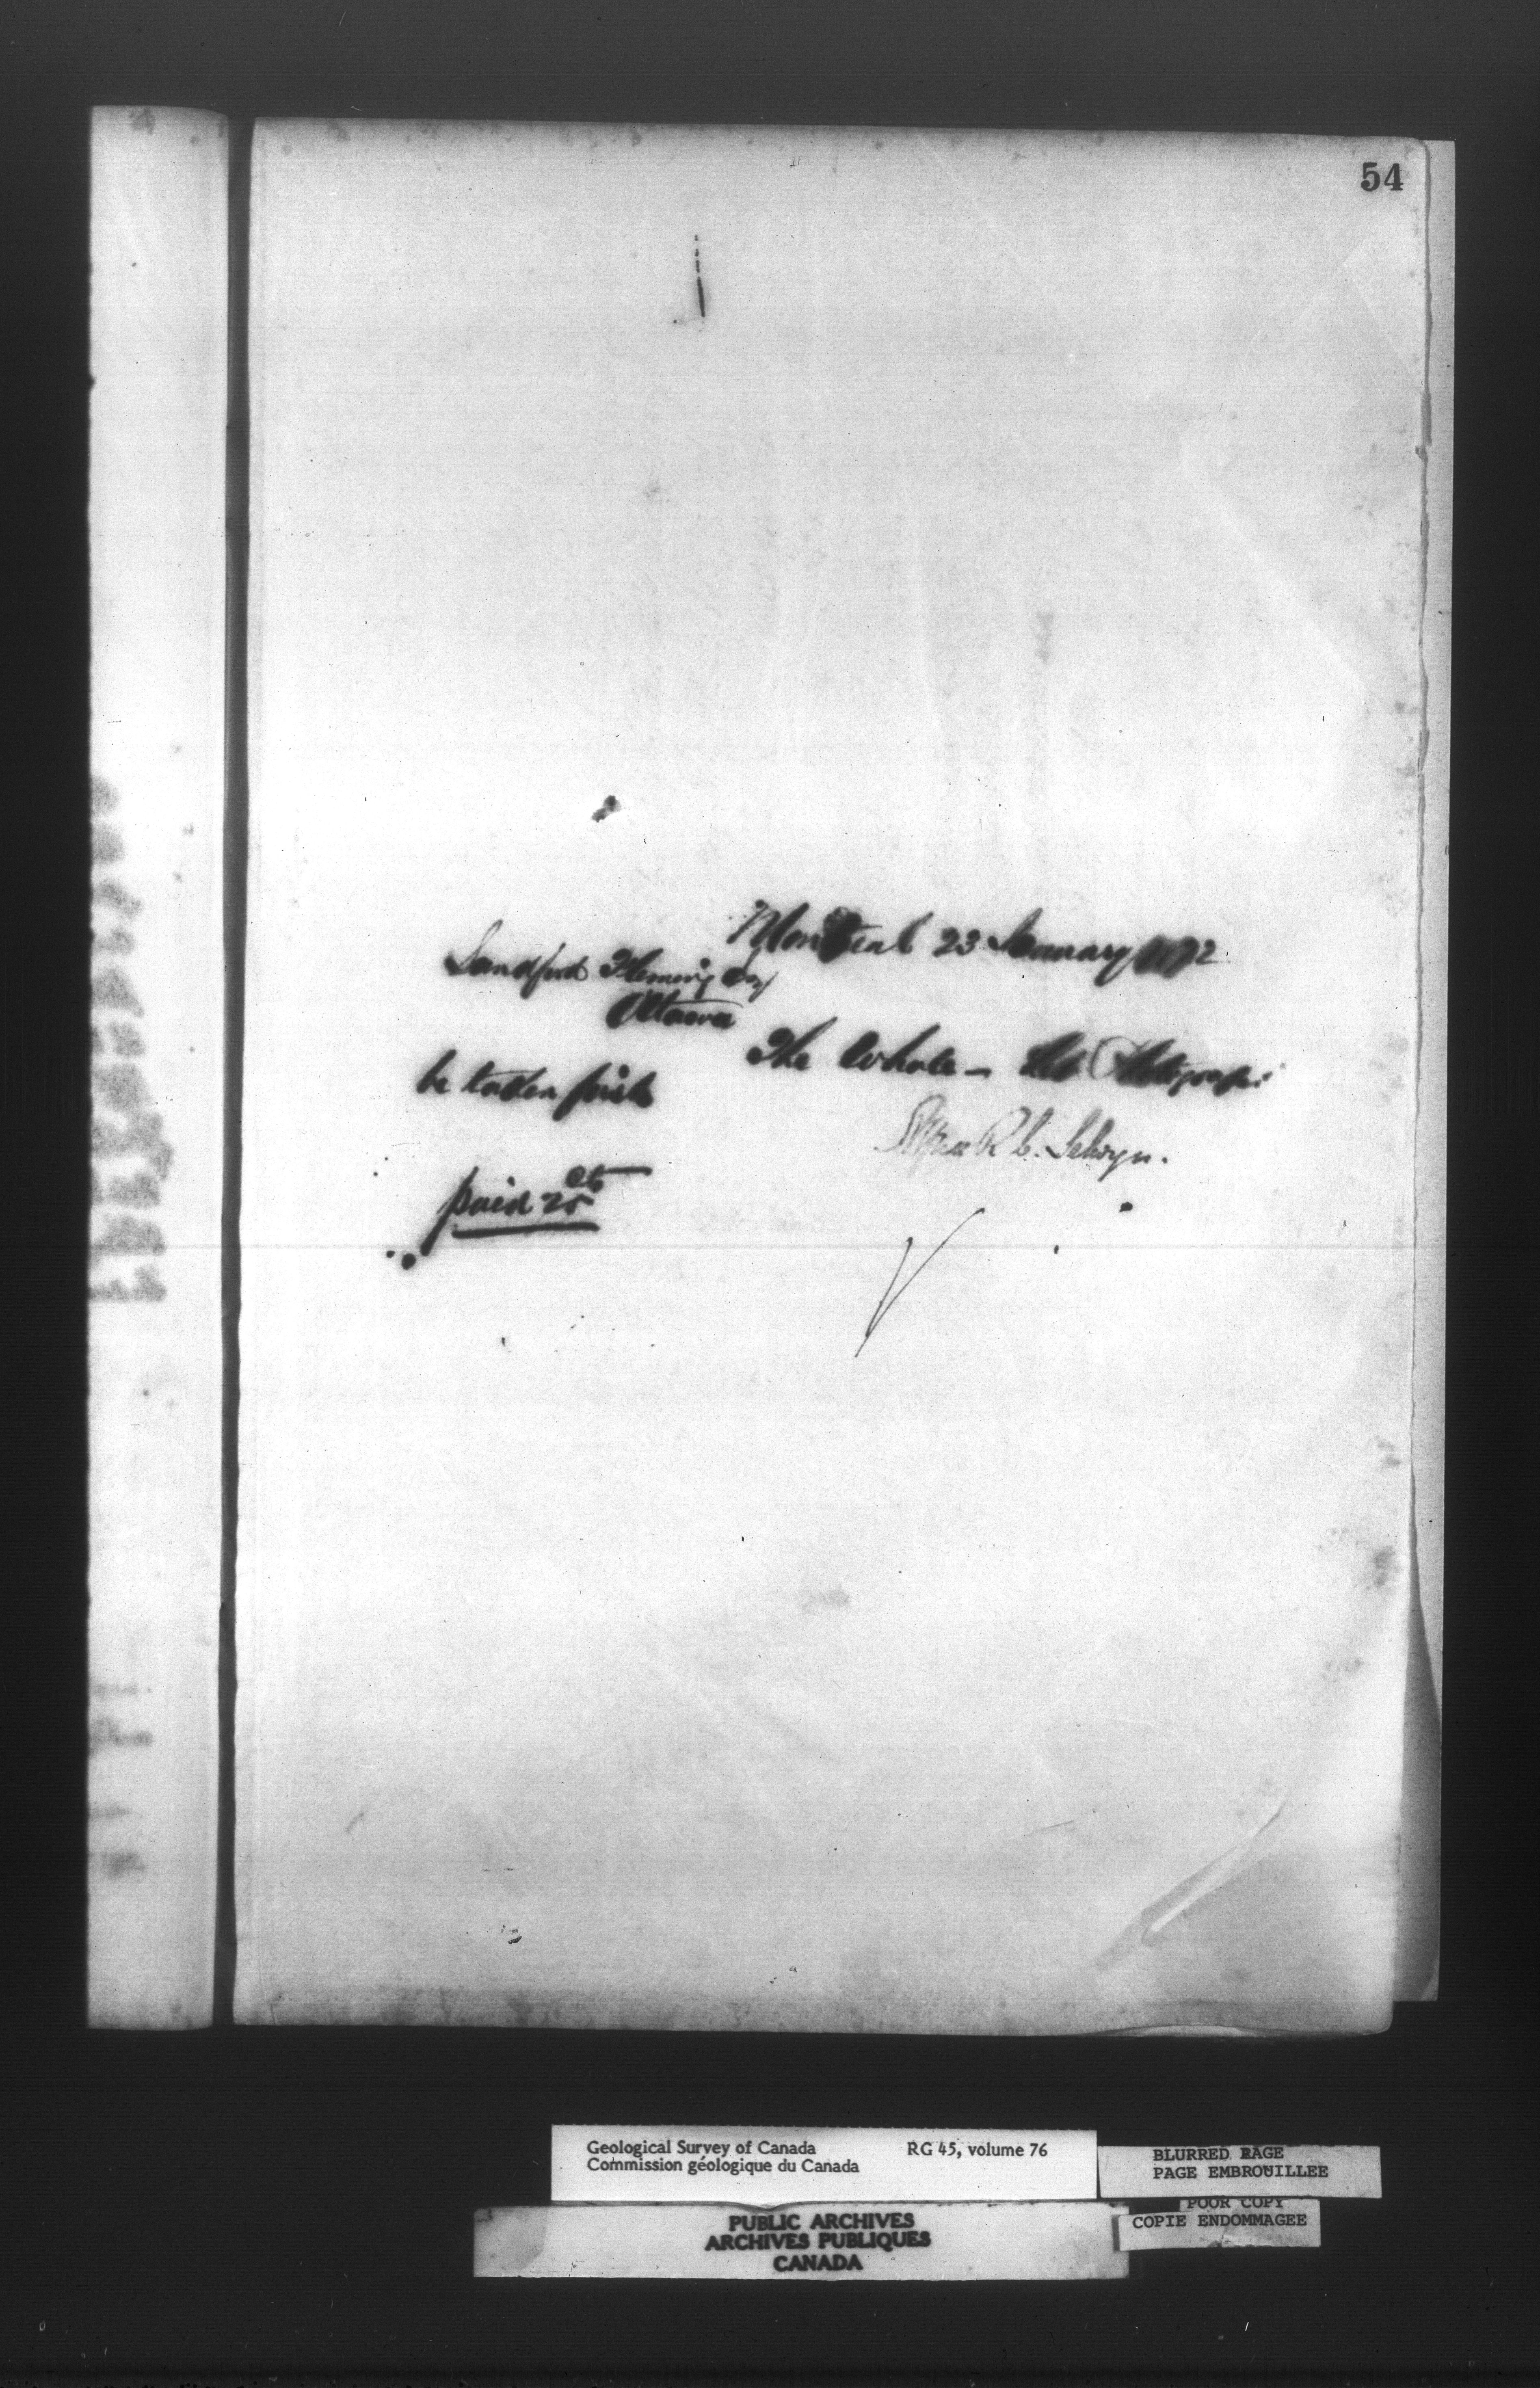 54
Montreal 23 January 1872
Sandford Fleming Esq
Ottawa
The Whole -
be taken
Alfred R. C. Selwyn.
paid 25 cts
Geological Survey of Canada RG 45, volume 76
Commission géologique du Canada
BLURRED PAGE
PAGE EMBROUILLEE
POOR COPY
COPIE ENDOMMAGEE
PUBLIC ARCHIVES
ARCHIVES PUBLIQUES
CANADA